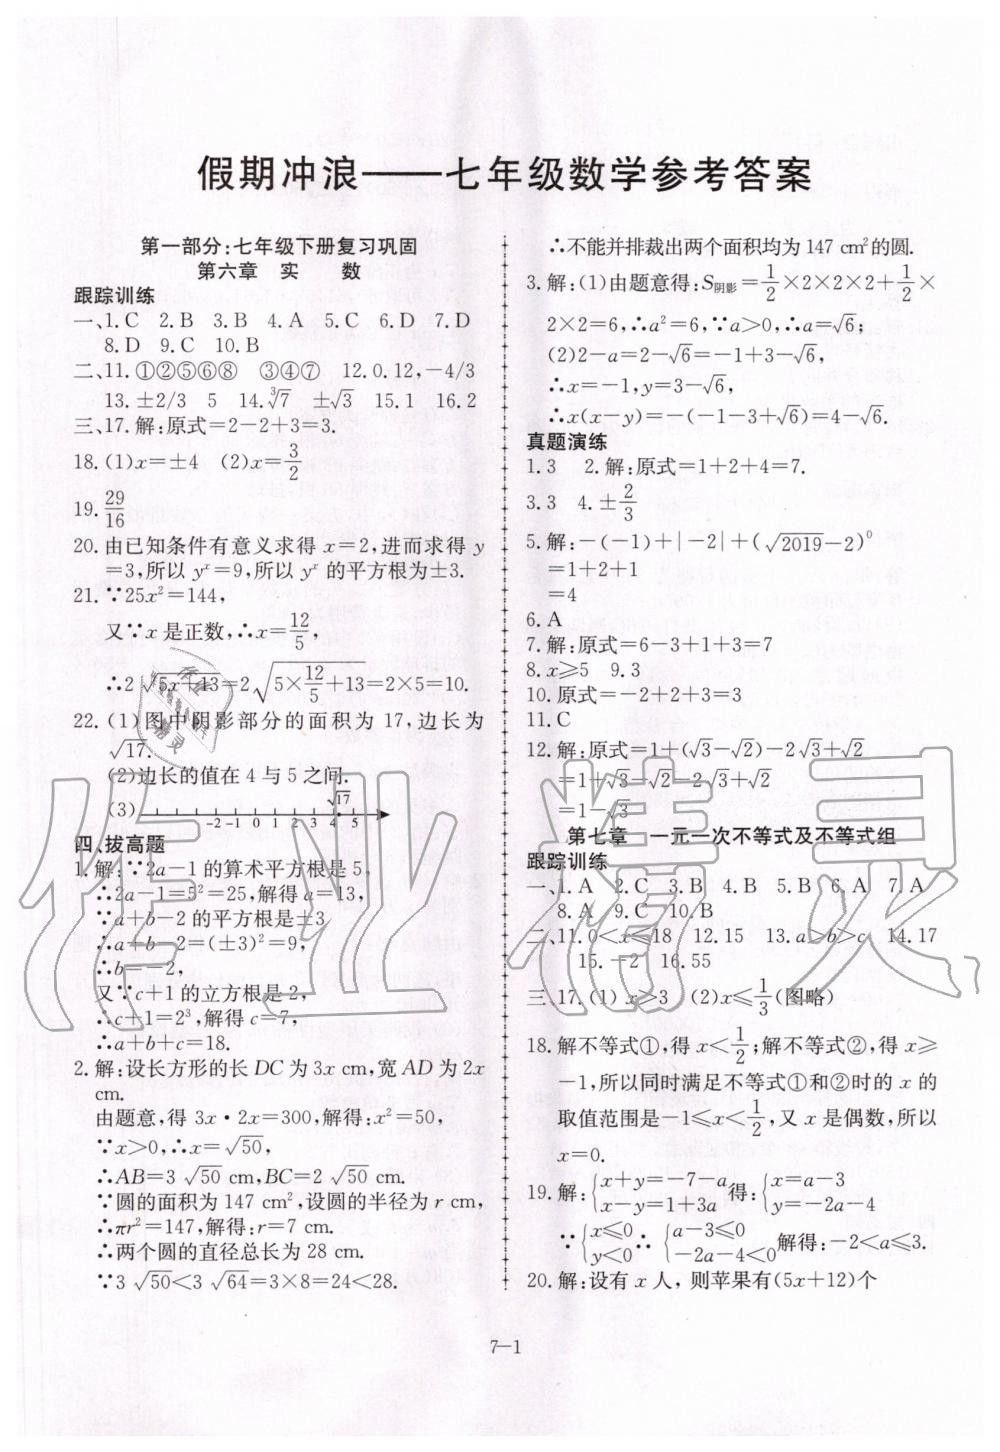 假期冲浪——七年级数学参考答案
第一部分:七年级下册复习巩固
第六章 实 数
跟踪训练
一、1.C 2.B 3.B 4.A 5.C 6.D 7.D
8.D 9.C 10.B
二、11.①②⑤⑥⑧ ③④⑦ 12.0.12,-4/3
13.±2/3 5 14.∛7 ±√3 15.1 16.2
三、17.解:原式=2-2+3=3.
18.(1)x=±4 (2)x=3/2
19.29/16
20.由已知条件有意义求得 x=2,进而求得 y
=3,所以 yˣ=9,所以 yˣ 的平方根为±3.
21.∵25x²=144,
又∵x 是正数,∴x=12/5,
∴2√(5x+13)=2√(5×12/5+13)=2×5=10.
22.(1)图中阴影部分的面积为 17,边长为
√17.
(2)边长的值在 4 与 5 之间.
(3) -2 -1 0 1 2 3 4 √17 5
四、拔高题
1.解:∵2a-1 的算术平方根是 5,
∴2a-1=5²=25,解得 a=13,
∵a+b-2 的平方根是±3
∴a+b-2=(±3)²=9,
∴b=-2,
又∵c+1 的立方根是 2,
∴c+1=2³,解得 c=7,
∴a+b+c=18.
2.解:设长方形的长 DC 为 3x cm,宽 AD 为 2x
cm.
由题意,得 3x·2x=300,解得:x²=50,
∵x>0,∴x=√50,
∴AB=3√50 cm,BC=2√50 cm.
∵圆的面积为 147 cm²,设圆的半径为 r cm,
∴πr²=147,解得:r=7 cm.
∴两个圆的直径总长为 28 cm.
∵3√50<3√64=3×8=24<28.
∴不能并排裁出两个面积均为 147 cm²的圆.
3.解:(1)由题意得:S阴影=1/2×2×2×2+1/2×
2×2=6,∴a²=6,∵a>0,∴a=√6;
(2)2-a=2-√6=-1+3-√6,
∴x=-1,y=3-√6,
∴x(x-y)=-(-1-3+√6)=4-√6.
真题演练
1.3 2.解:原式=1+2+4=7.
3.3 4.±2/3
5.解:-(-1)+|-2|+(√2019-2)⁰
=1+2+1
=4
6.A
7.解:原式=6-3+1+3=7
8.x≥5 9.3
10.原式=-2+2+3=3
11.C
12.解:原式=1+(√3-√2)-2√3+√2
=1+√3-√2-2√3+√2
=1-√3
第七章 一元一次不等式及不等式组
跟踪训练
一、1.A 2.C 3.B 4.B 5.B 6.A 7.A
8.A 9.C 10.B
二、11.0<x≤18 12.15 13.a>b>c 14.17
15.-2 16.55
三、17.(1) x≥3 (2)x≤1/3(图略)
18.解不等式①,得 x<1/2;解不等式②,得 x≥
-1,所以同时满足不等式①和②时的 x 的
取值范围是-1≤x<1/2,又 x 是偶数,所以
x=0.
19.解:{x+y=-7-a x-y=1+3a 得:{x=a-3 y=-2a-4
∵{x≤0 y<0 ∴{a-3≤0 -2a-4<0 解得:-2<a≤3.
20.解:设有 x 人, 则苹果有(5x+12)个
7—1
作业精灵